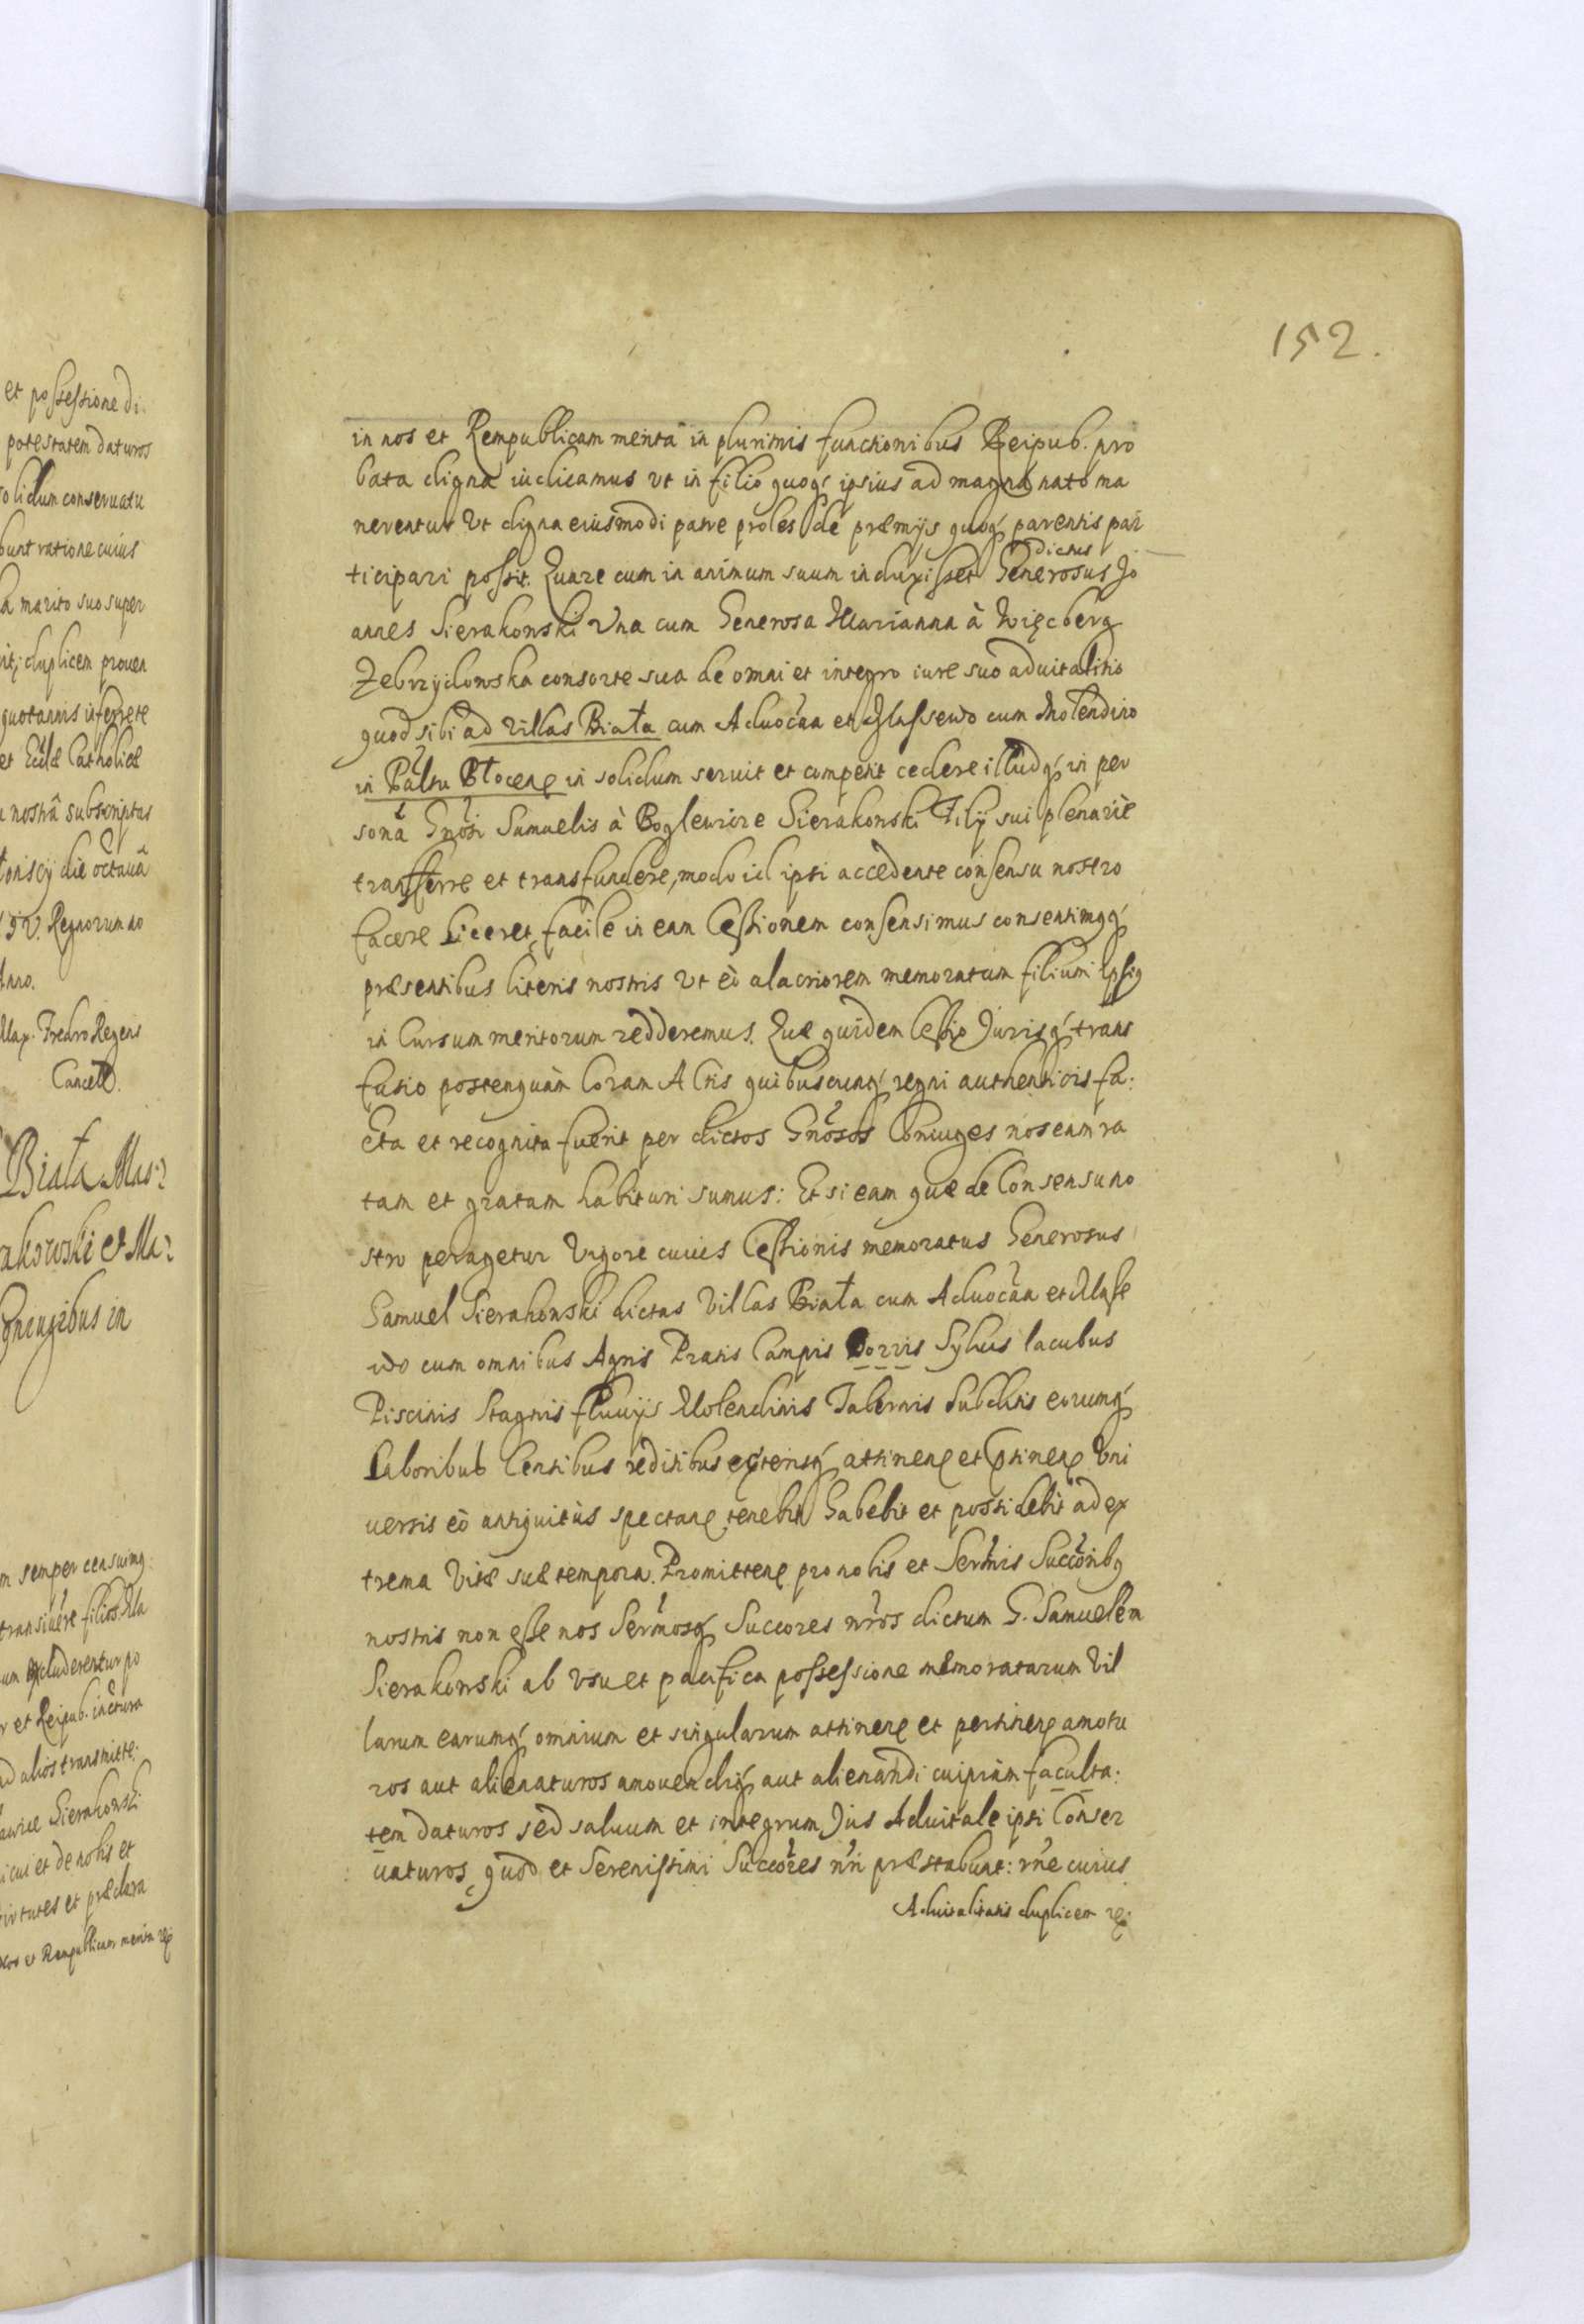 et possessione di
potestatem daturos
solidum conseruatu
bunt ratione cuius
a marito suo super
duplicem prouen
quotannis inferrete
et Eccl'æ Catholicæ
nostrâ subscriptas
die octauâ
IV. Regnorum no
Anno.
Max. Fredro Regens
Cancell.
Biała Mas:
rakowski et Ma:
Coniugibus in
m semper censuimq
transiuêre filios. Na
um excluderentur po
r et Reipub. iactura
ad alios transmitte:
Sierakowski
icui et de nobis et
uirtutes et præclara
Nos et Rempublicam merita
152.
in nos et Rempublicam merita in plurimis functionibus Reipub. pro
bata digna iudicamus vt in filio quoq́ ipsius ad magna nato ma
nerentur Vt digna eiusmodi patre proles de præmijs quoq́ parentis par
dictus
ticipari possit. Quare cum in animum suum induxisset Generosus Jo
annes Sierakowski Vna cum Generosa Marianna à Więcberg
Zebrzydowska consorte sua de omni et integro iure suo aduitalitio
quod sibi ad villas Biała cum Aduocãa et Massewo cum Molendino
in Paltu Płocenȩ in solidum seruit et competit cedere illudq́ in per
sonã Gnõsi Samuelis à Boglewice Sierakowski Filij sui plenariè
transferre et transfundere, modo id ipsi accedente consensu nostro
facere liceret, facile in eam Cessionem consensimus consentimqq́
præsentibus literis nostris Vt eò alacriorem memoratum filium Ipsiq
in Cursum meritorum redderemus. Quæ quidem Cessio Jurisq́ trans
fusio posteaquàm Coram Actis quibuscunq́ regni authenticis fa:
cta et recognita fuerit per dictos Gnõsos Coniuges nos eam ra
tam et gratam habituri sumus: Etsi eam quæ de Consensu no
stro peragetur Vigore cuius Cessionis memoratus Generosus
Samuel Sierakowski dictas Villas Biała cum Aduocãa et Masse
wo cum omnibus Agris Pratis Campis Borris Syluis lacubus
Piscinis Stagnis fluuijs Molendinis Tabernis Subditis eorumq́
Laboribus Censibus reditibus cȩterisq́ attinenȩ et ptinenȩ Vni
uersis eò antiquitùs spectanȩ tenebit habebit et possidebit ad ex
trema Vitæ suæ tempora. Promittenȩ pro nobis et Serm̃is Succõribq
nostris non esse nos Serm̃osq́ Succores nr̃os dictum G. Samuelem
Sierakowski ab Vsu et pacifica possessione memoratarum Vil
larum earumq́ omnium et singularum attinenȩ et pertinenȩ amotu
ros aut alienaturos amouendiq́ aut alienandi cuipiàm faculta:
tem daturos sed saluum et integrum Jus Aduitale ipsi Conser
uaturos, quod et Serenissimi Succõres nr̃i præstabunt: rñe cuius
Aduitalitatis duplicem